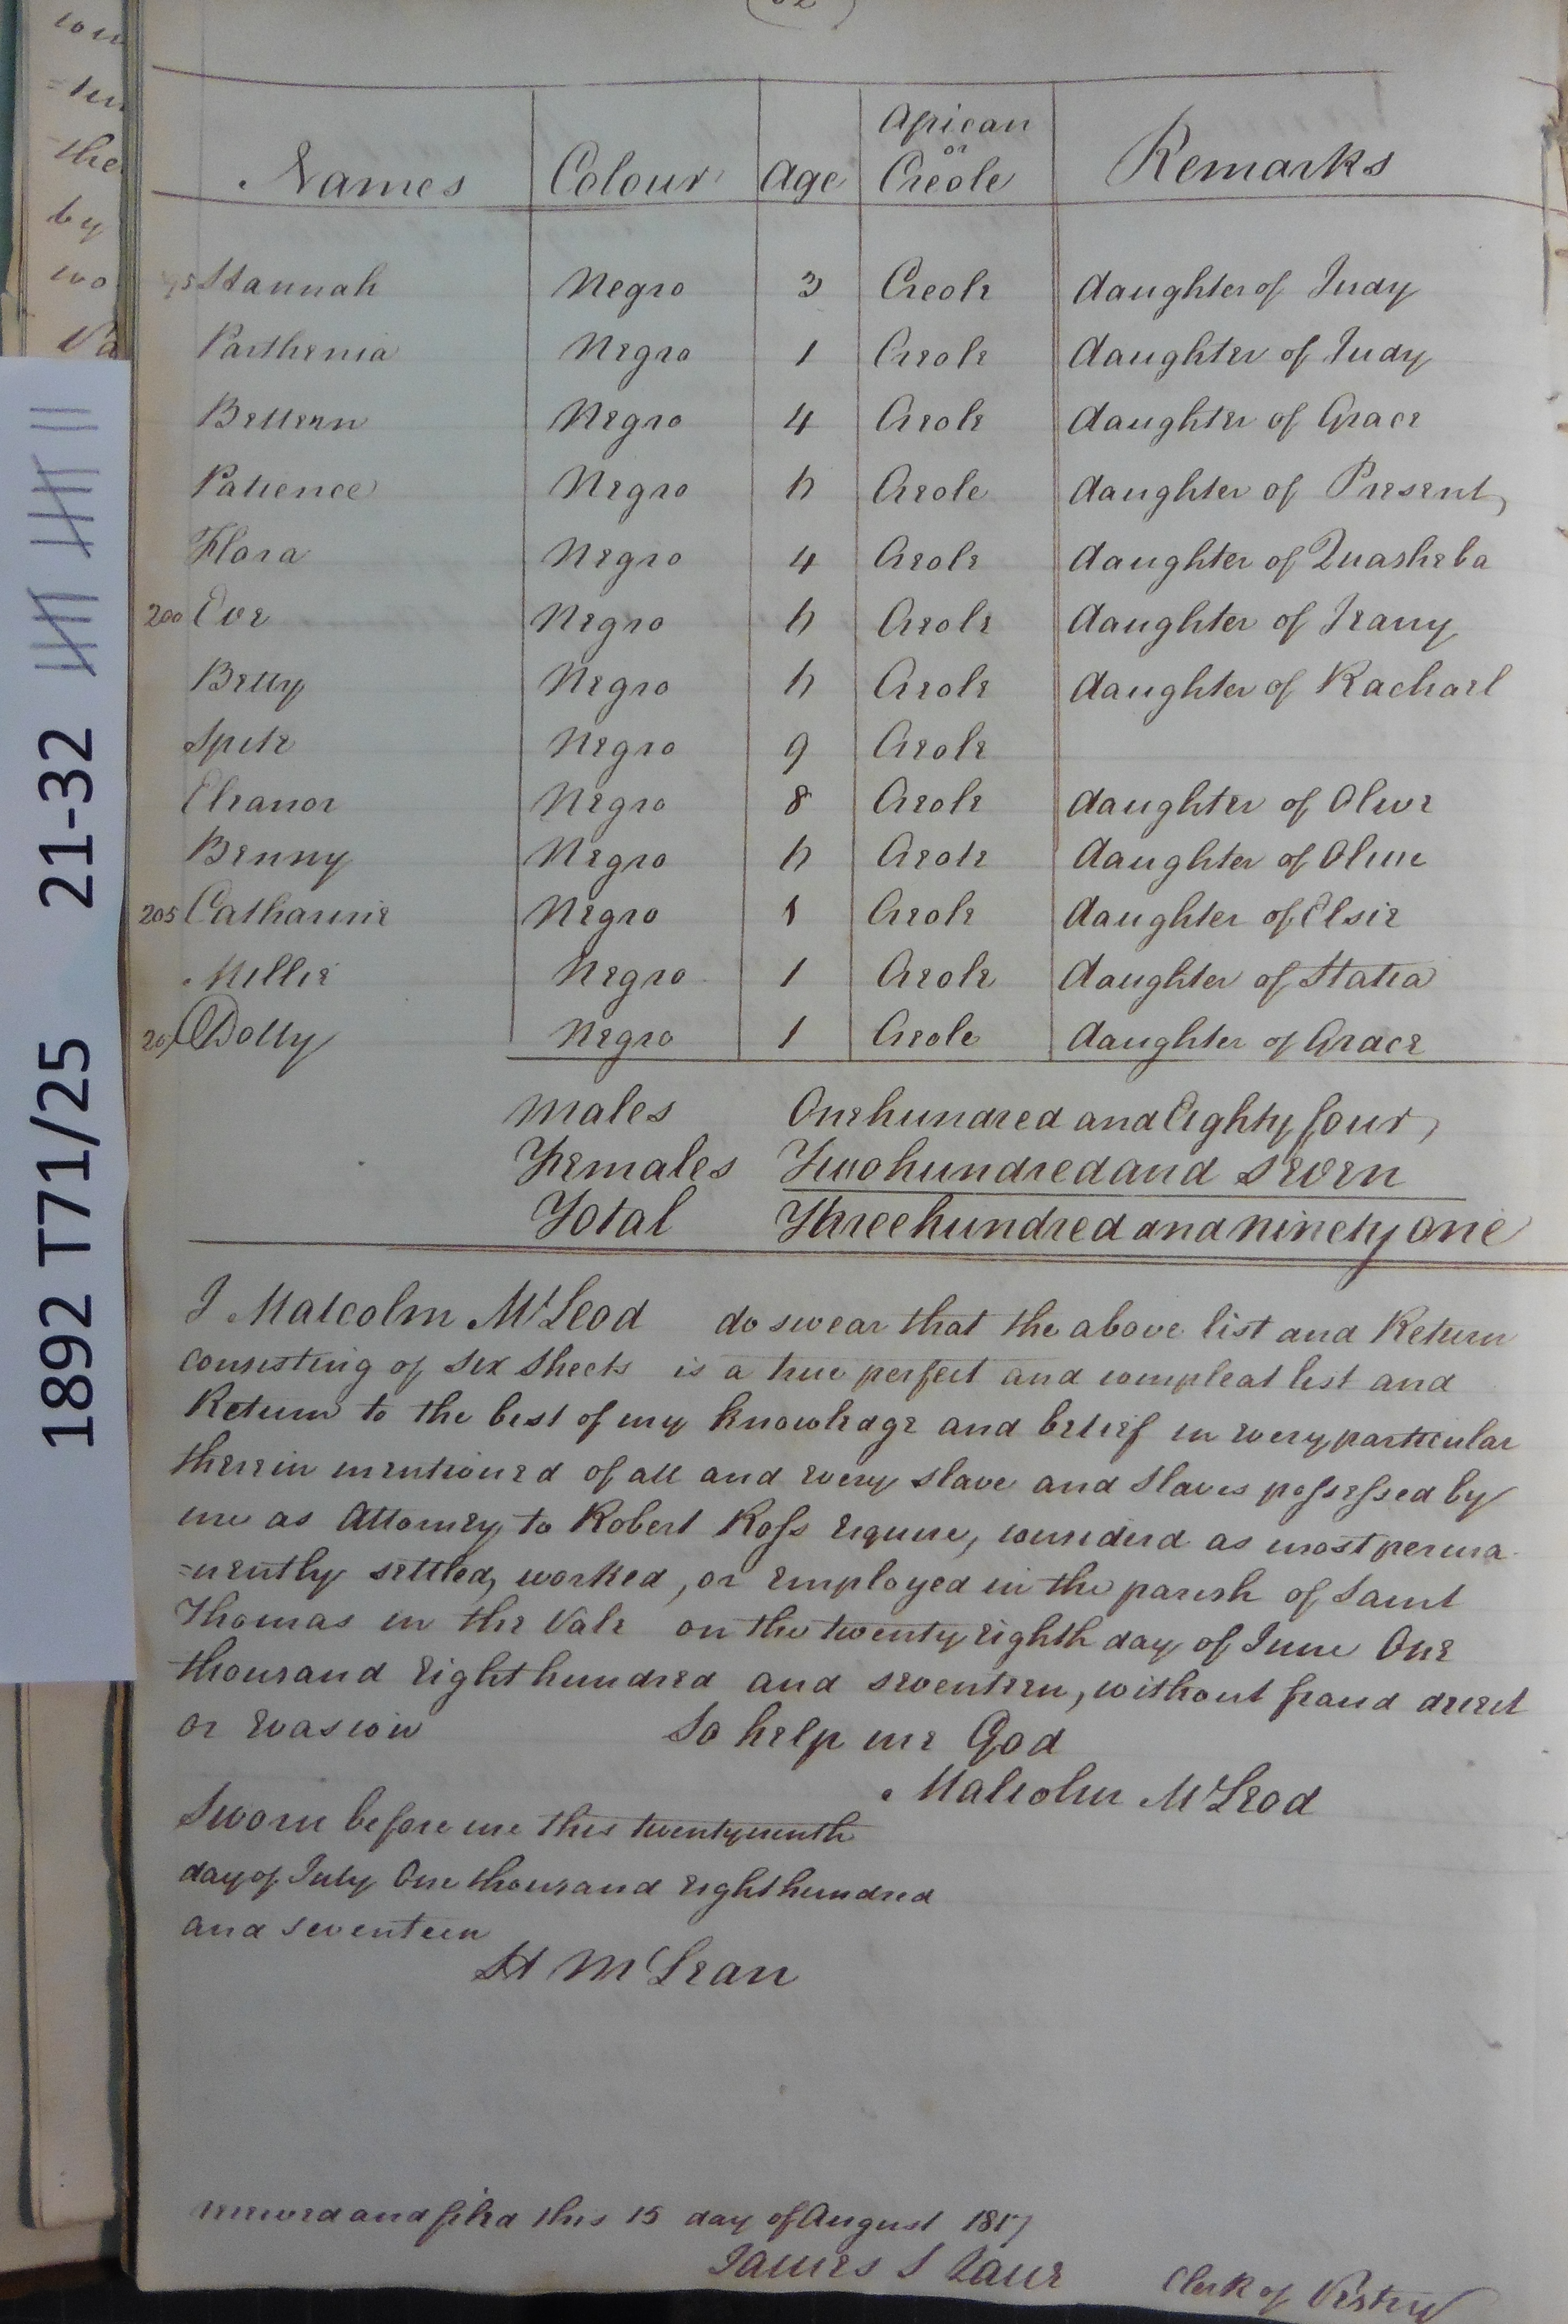 Names Colour Age African or Creole Remarks
Hannah Negro 3 Creole daughter of Judy
Parthenia Negro 1 Creole daughter of Judy
Betteen Negro 4 Creole daughter of Grace
Patience Negro h Creole daughter of Present
Flora Negro 4 Creole daughter of Quasheba
200 Eve Negro h Creole daughter of Jeany
Betty Negro h Creole daughter of Rachael
Spite Negro 9 Creole
Eleanor Negro 8 Creole daughter of Olive
Benny Negro h Creole daughter of Olive
205 Catharine Negro 1 Creole daughter of Elsie
Millie Negro 1 Creole daughter of Statia
207 Dolly Negro 1 Creole daughter of Grace
Males One hundred and Eighty four
Females Two hundred and Seven
Total Three hundred and ninety one
I Malcolm McLeod do swear that the above list and Return
consisting of six sheets is a true perfect and compleat list and
Return to the best of my knowledge and belief in every particular
therein mentioned of all and every slave and slaves possessed by
me as Attorney to Robert Ross Esquire, considered as most perma
=nently settled, worked, or employed in the parish of Saint
Thomas in the Vale on the twenty eighth day of June One
thousand Eight hundred and seventeen, without fraud deceit
or evasion So help me God
Malcolm McLeod
Sworn before me this twentyninth
day of July One thousand Eight hundred
and seventeen
H McLean
received and filed this 15 day of August 1817
James S Lane Clerk of Vestry
1892 T71/25 21-32